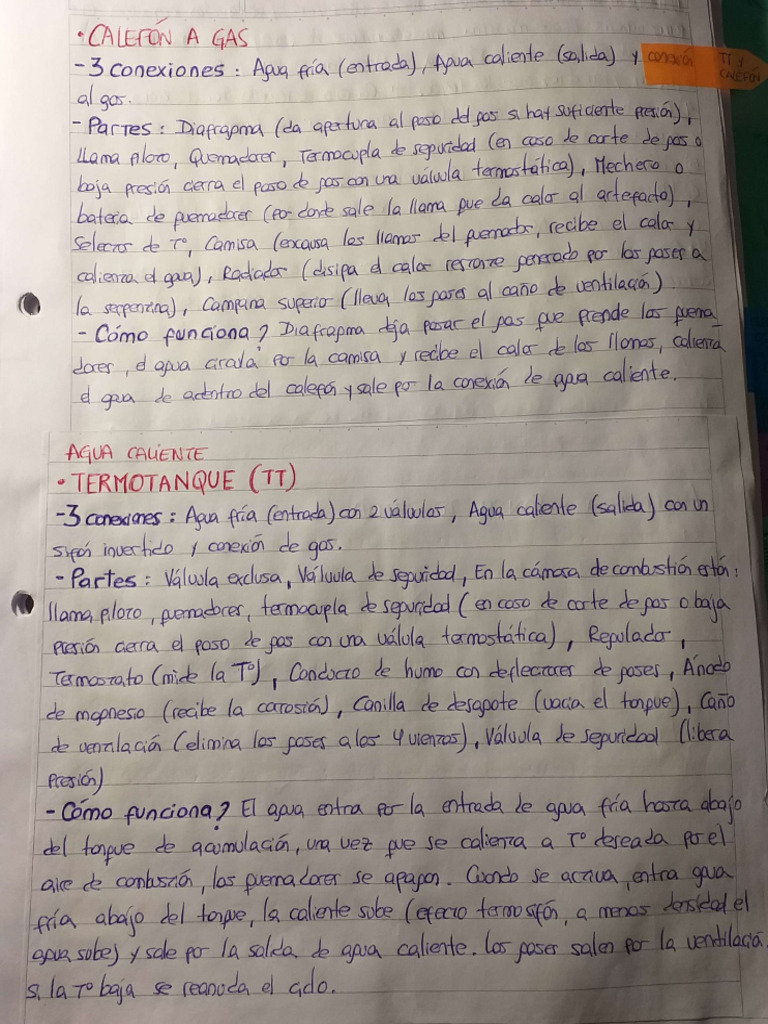 • CALEFÓN A GAS
- 3 conexiones: Agua fría (entrada), Agua caliente (salida) y conexión
TT y
CALEFÓN
al gas.
- Partes: Diafragma (da apertura al paso del gas si hay suficiente presión),
llama piloto, Quemadores, Termocupla de seguridad (en caso de corte de gas o
baja presión cierra el paso de gas con una válvula termostática), Mechero o
batería de quemadores (por donde sale la llama que da calor al artefacto),
Selector de Tº, Camisa (excausa las llamas del quemador, recibe el calor y
calienta el gaua), Radiador (disipa el calor restante generado por los gases a
la serpentina), Campana superio (lleva los gases al caño de ventilación)
- Cómo funciona? Diafragma deja pasar el gas que prende los quema
dores, el agua circula por la camisa y recibe el calor de las llamas, calienta
el gaua de adentro del calefón y sale por la conexión de agua caliente.
AGUA CALIENTE
• TERMOTANQUE (TT)
- 3 conexiones: Agua fría (entrada) con 2 válvulas, Agua caliente (salida) con un
sifón invertido y conexión de gas.
- Partes: Válvula exclusa, Válvula de seguridad, En la cámara de combustión están:
llama piloto, quemadores, termocupla de seguridad (en caso de corte de gas o baja
presión cierra el paso de gas con una válvula termostática), Regulador,
Termostato (mide la Tº), Conducto de humo con deflectores de gases, Ánodo
de magnesio (recibe la corrosión), Canilla de desagote (vacia el tanque), Caño
de ventilación (elimina los gases a los 4 vientos), Válvula de seguridad (libera
presión)
- Cómo funciona? El agua entra por la entrada de agua fría hasta abajo
del tanque de acumulación, una vez que se calienta a Tº deseada por el
aire de combustión, los quemadores se apagan. Cuando se activa, entra gaua
fría abajo del tanque, la caliente sube (efecto termosifón, a menos densidad el
agua sube) y sale por la salida de agua caliente. Los gases salen por la ventilación.
Si la Tº baja se reanuda el ciclo.